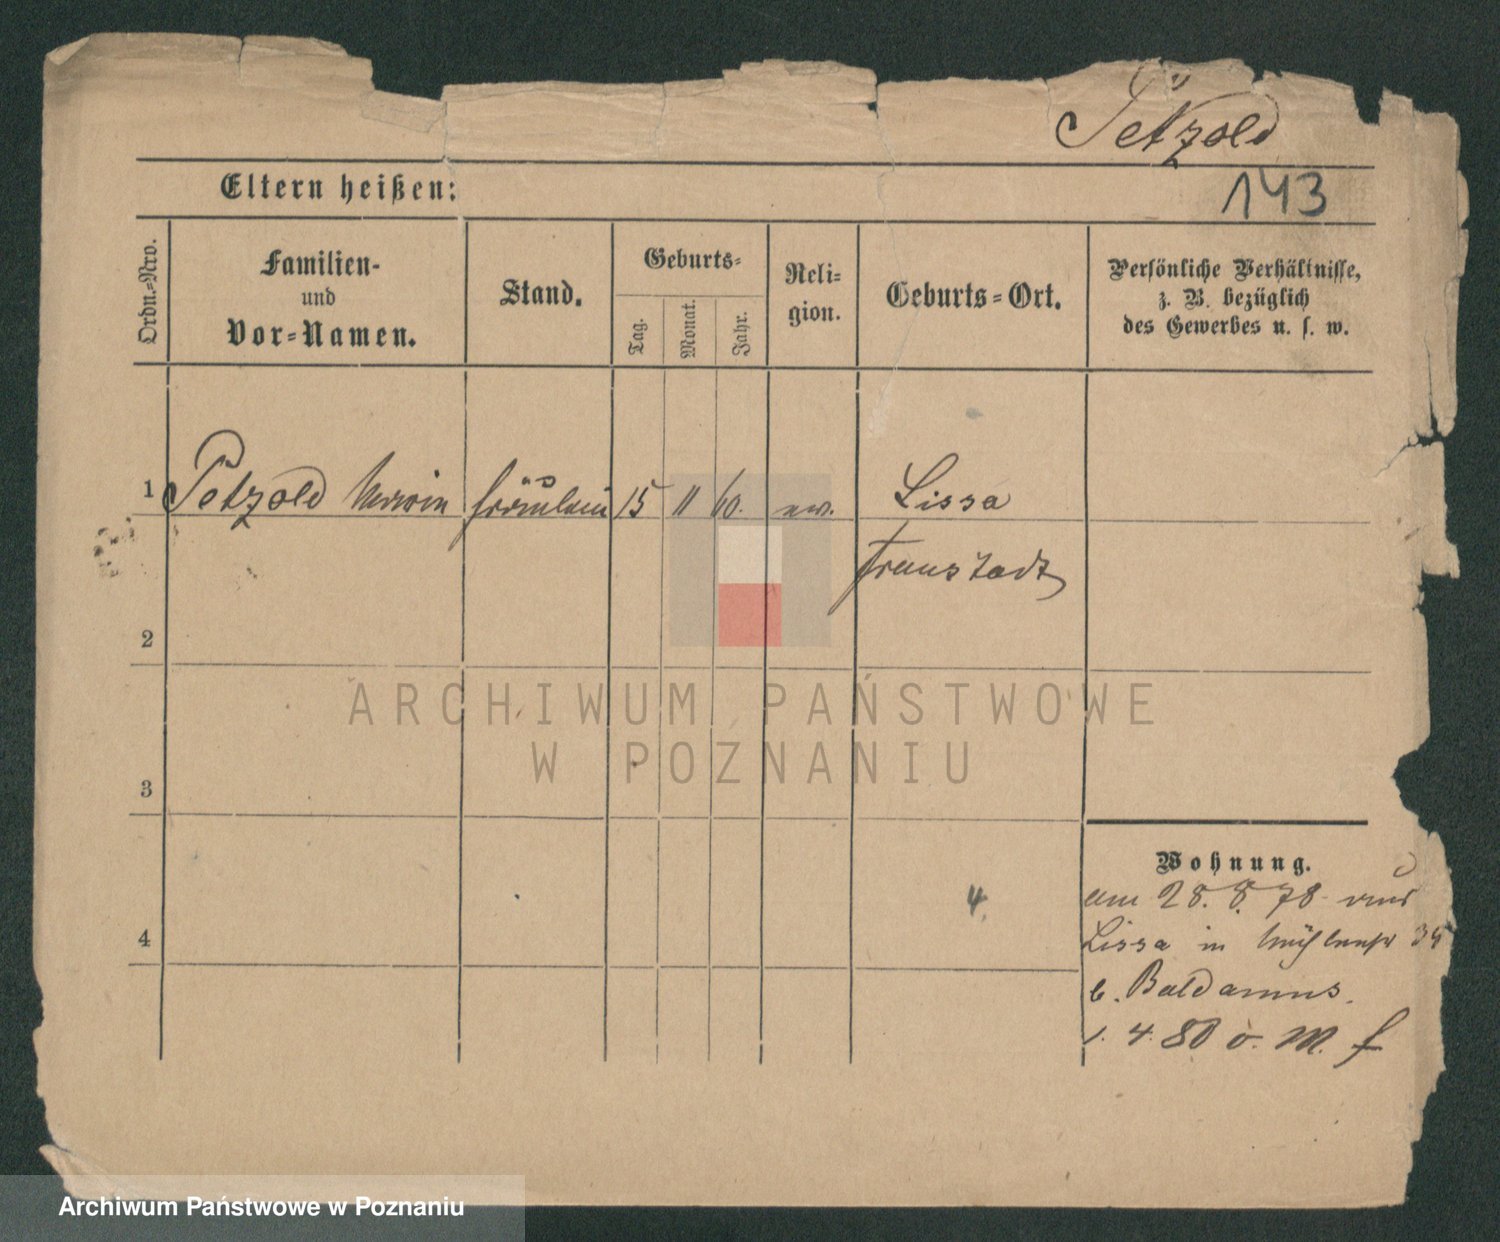 Petzold
143
Eltern heißen:
Ordn.-Nro.
Familien-
und
Vor-Namen.
Stand.
Geburts-
Tag.
Monat.
Jahr.
Reli-
gion.
Geburts-Ort.
Persönliche Verhältnisse,
z. B. bezüglich
des Gewerbes u. s. w.
1 Petzold Fräulein 15 11 60. ev. Lissa
Fraustadt
2
ARCHIWUM PAŃSTWOWE
W POZNANIU
3
Wohnung.
am 28. 8. 78
4
Lissa in 34
4
b. Baldamus.
1. 4. 80 o. M. f
Archiwum Państwowe w Poznaniu